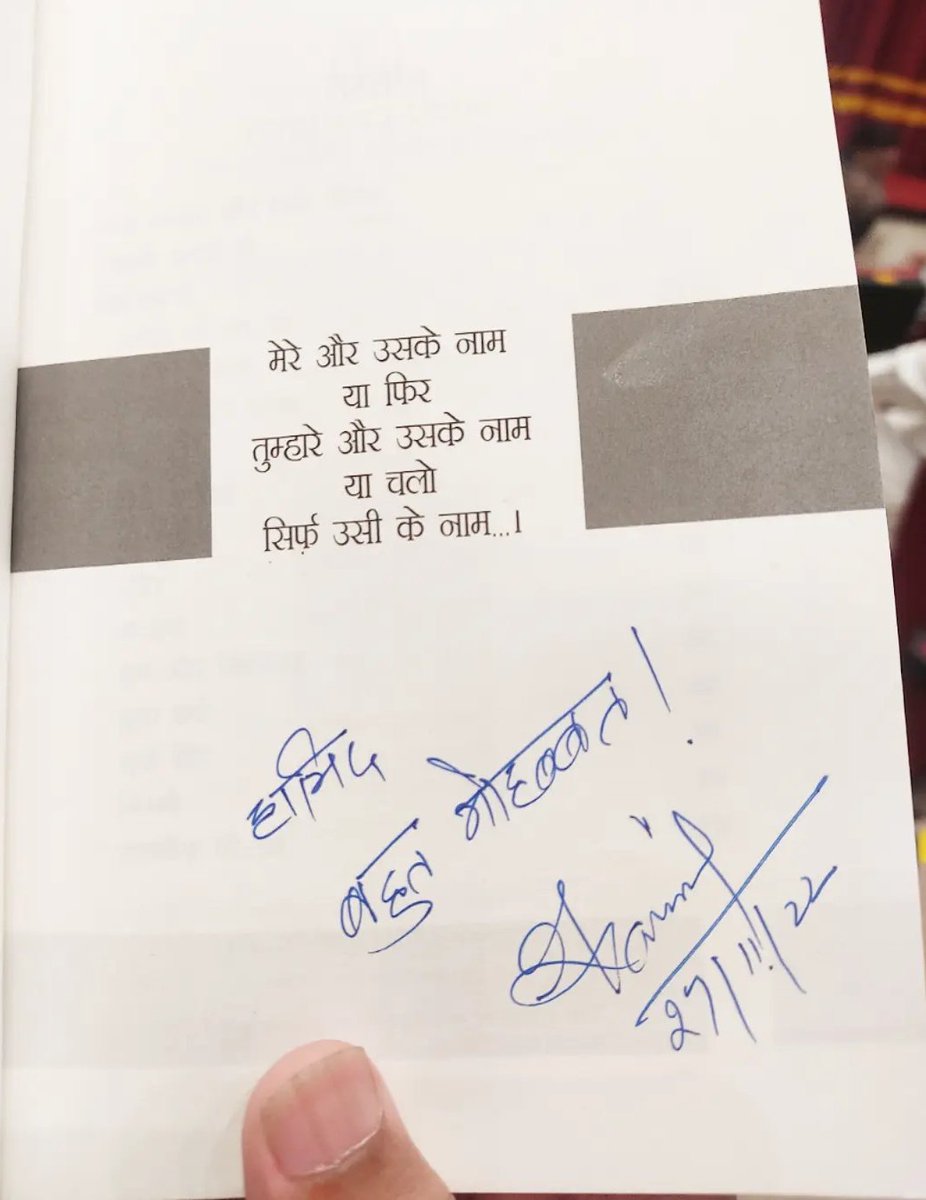 मेरे और उसके नाम
या फिर
तुम्हारे और उसके नाम
या चलो
सिर्फ़ उसी के नाम...।
हामिद
बहुत मोहब्बत।
27/11/22